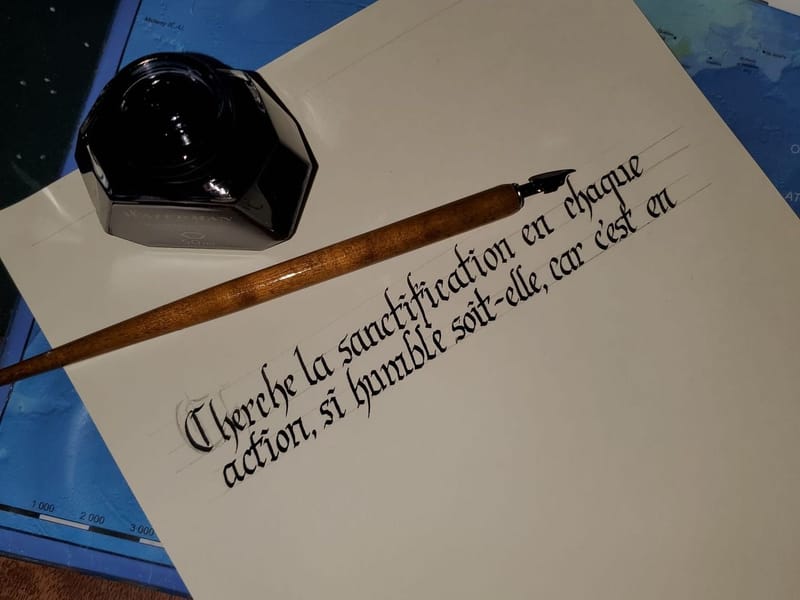 WATERMAN
Cherche la sanctification en chaque
action, si humble soit-elle, car c'est en
1 000
2 000
3 000